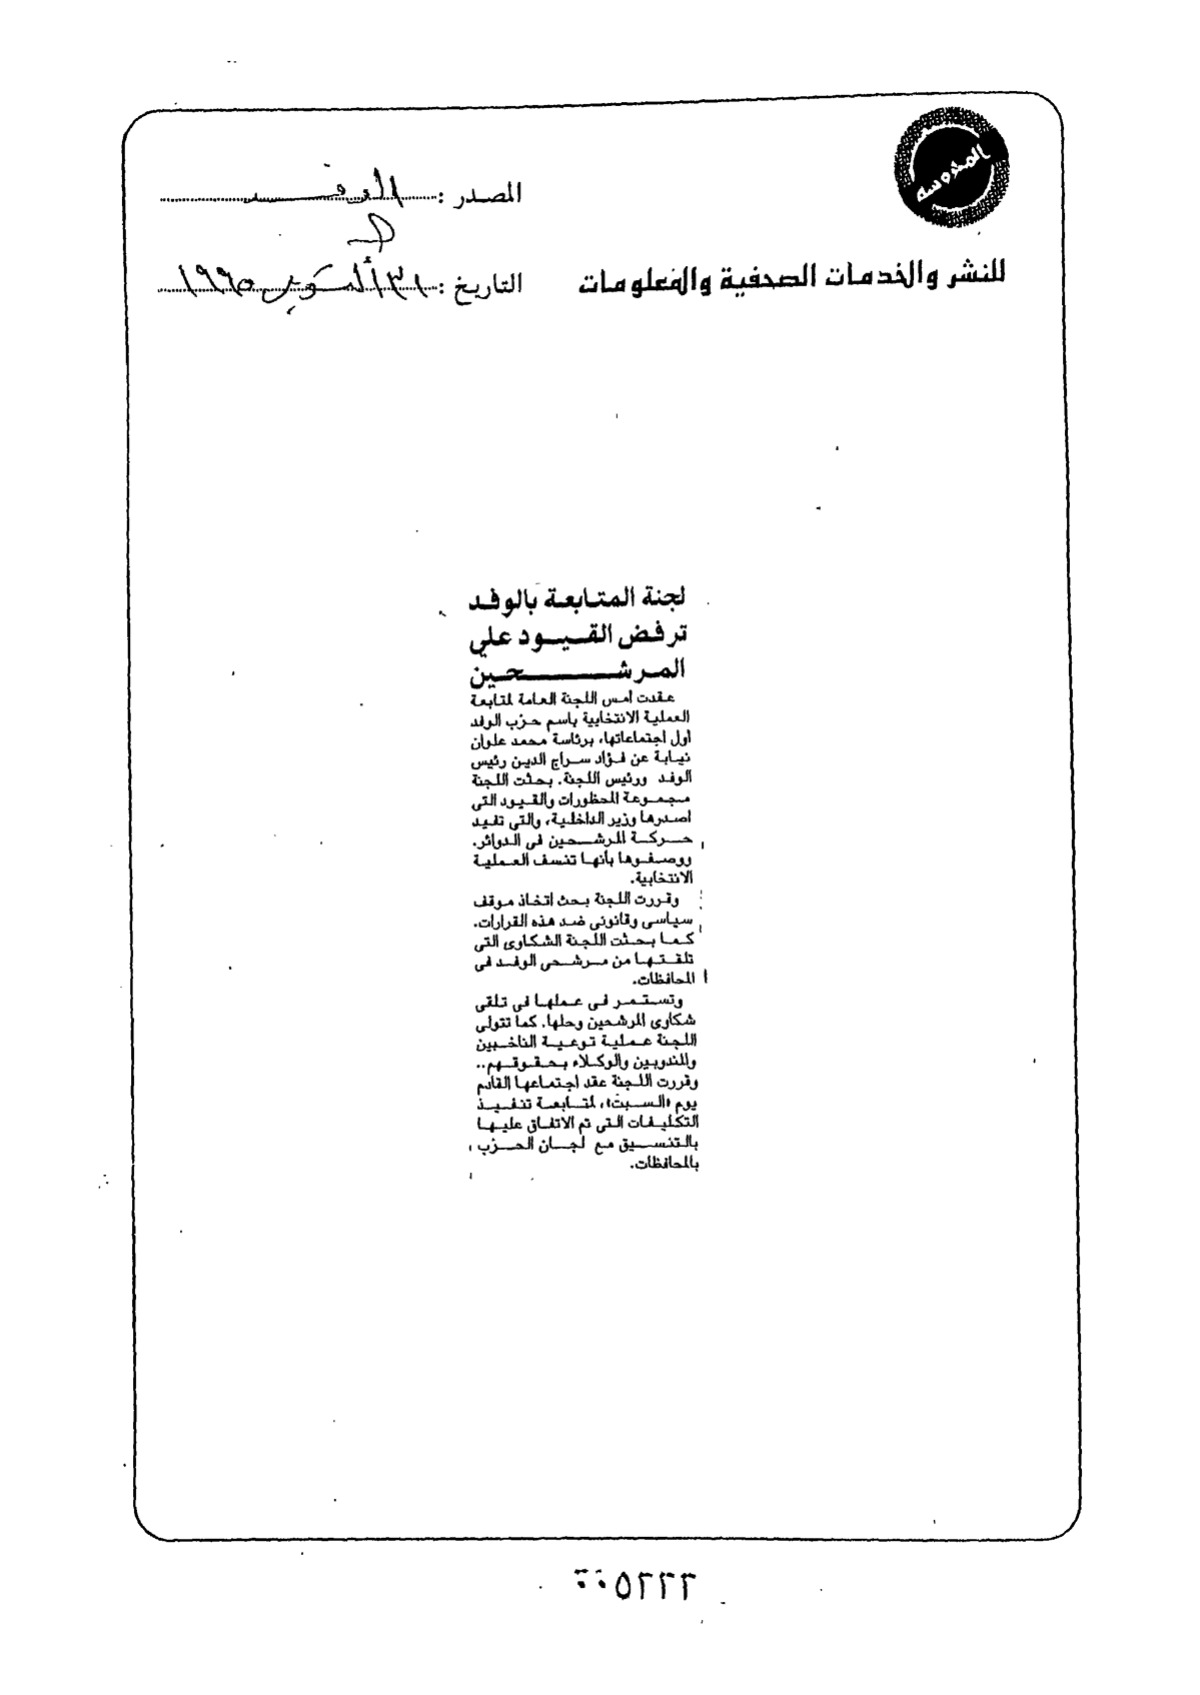 المصدر : الوفد
التاريخ : ٣١ أكتوبر ١٩٩٥
للنشر والخدمات الصحفية والمعلومات
لجنة المتابعة بالوفد
ترفض القيود علي
المرشحين
عقدت امس اللجنة العامة لمتابعة
العملية الانتخابية باسم حزب الوفد
اول اجتماعاتها، برئاسة محمد علوان
نيابة عن فؤاد سراج الدين رئيس
الوفد ورئيس اللجنة. بحثت اللجنة
مجموعة المحظورات والقيود التى
اصدرها وزير الداخلية، والتى تقيد
حركة المرشحين فى الدوائر.
ووصفوها بأنها تنسف العملية
الانتخابية.
وقررت اللجنة بحث اتخاذ موقف
سياسى وقانونى ضد هذه القرارات.
كما بحثت اللجنة الشكاوى التى
تلقتها من مرشحى الوفد فى
المحافظات.
وتستمر فى عملها فى تلقى
شكاوى المرشحين وحلها. كما تتولى
اللجنة عملية توعية الناخبين
والمندوبين والوكلاء بحقوقهم..
وقررت اللجنة عقد اجتماعها القادم
يوم «السبت»، لمتابعة تنفيذ
التكليفات التى تم الاتفاق عليها
بالتنسيق مع لجان الحزب
بالمحافظات.